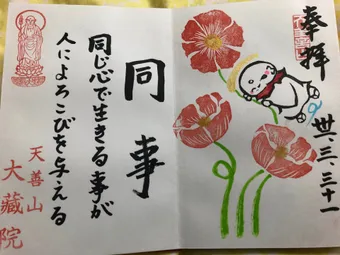 奉拝
卅一.三.三十一
同事
同じ心で生きる事が
人によろこびを与える
天善山
大藏院